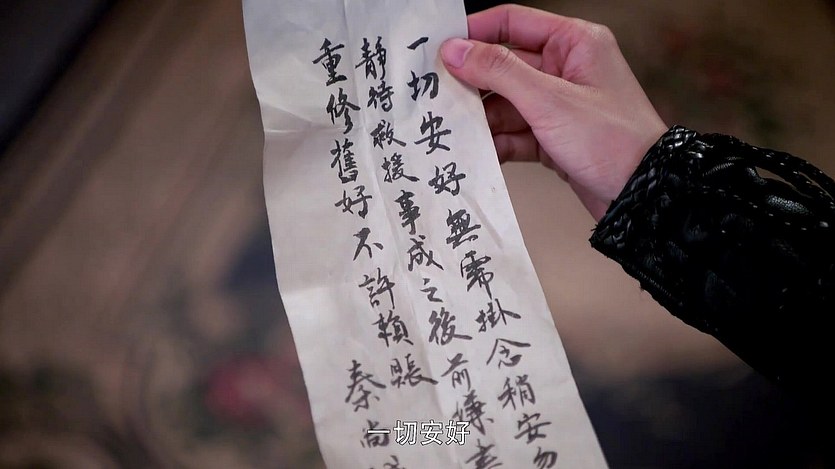 一切安好無需掛念稍安勿
靜待救援事成之後前嫌
重修舊好不許賴賬
秦尚
一切安好